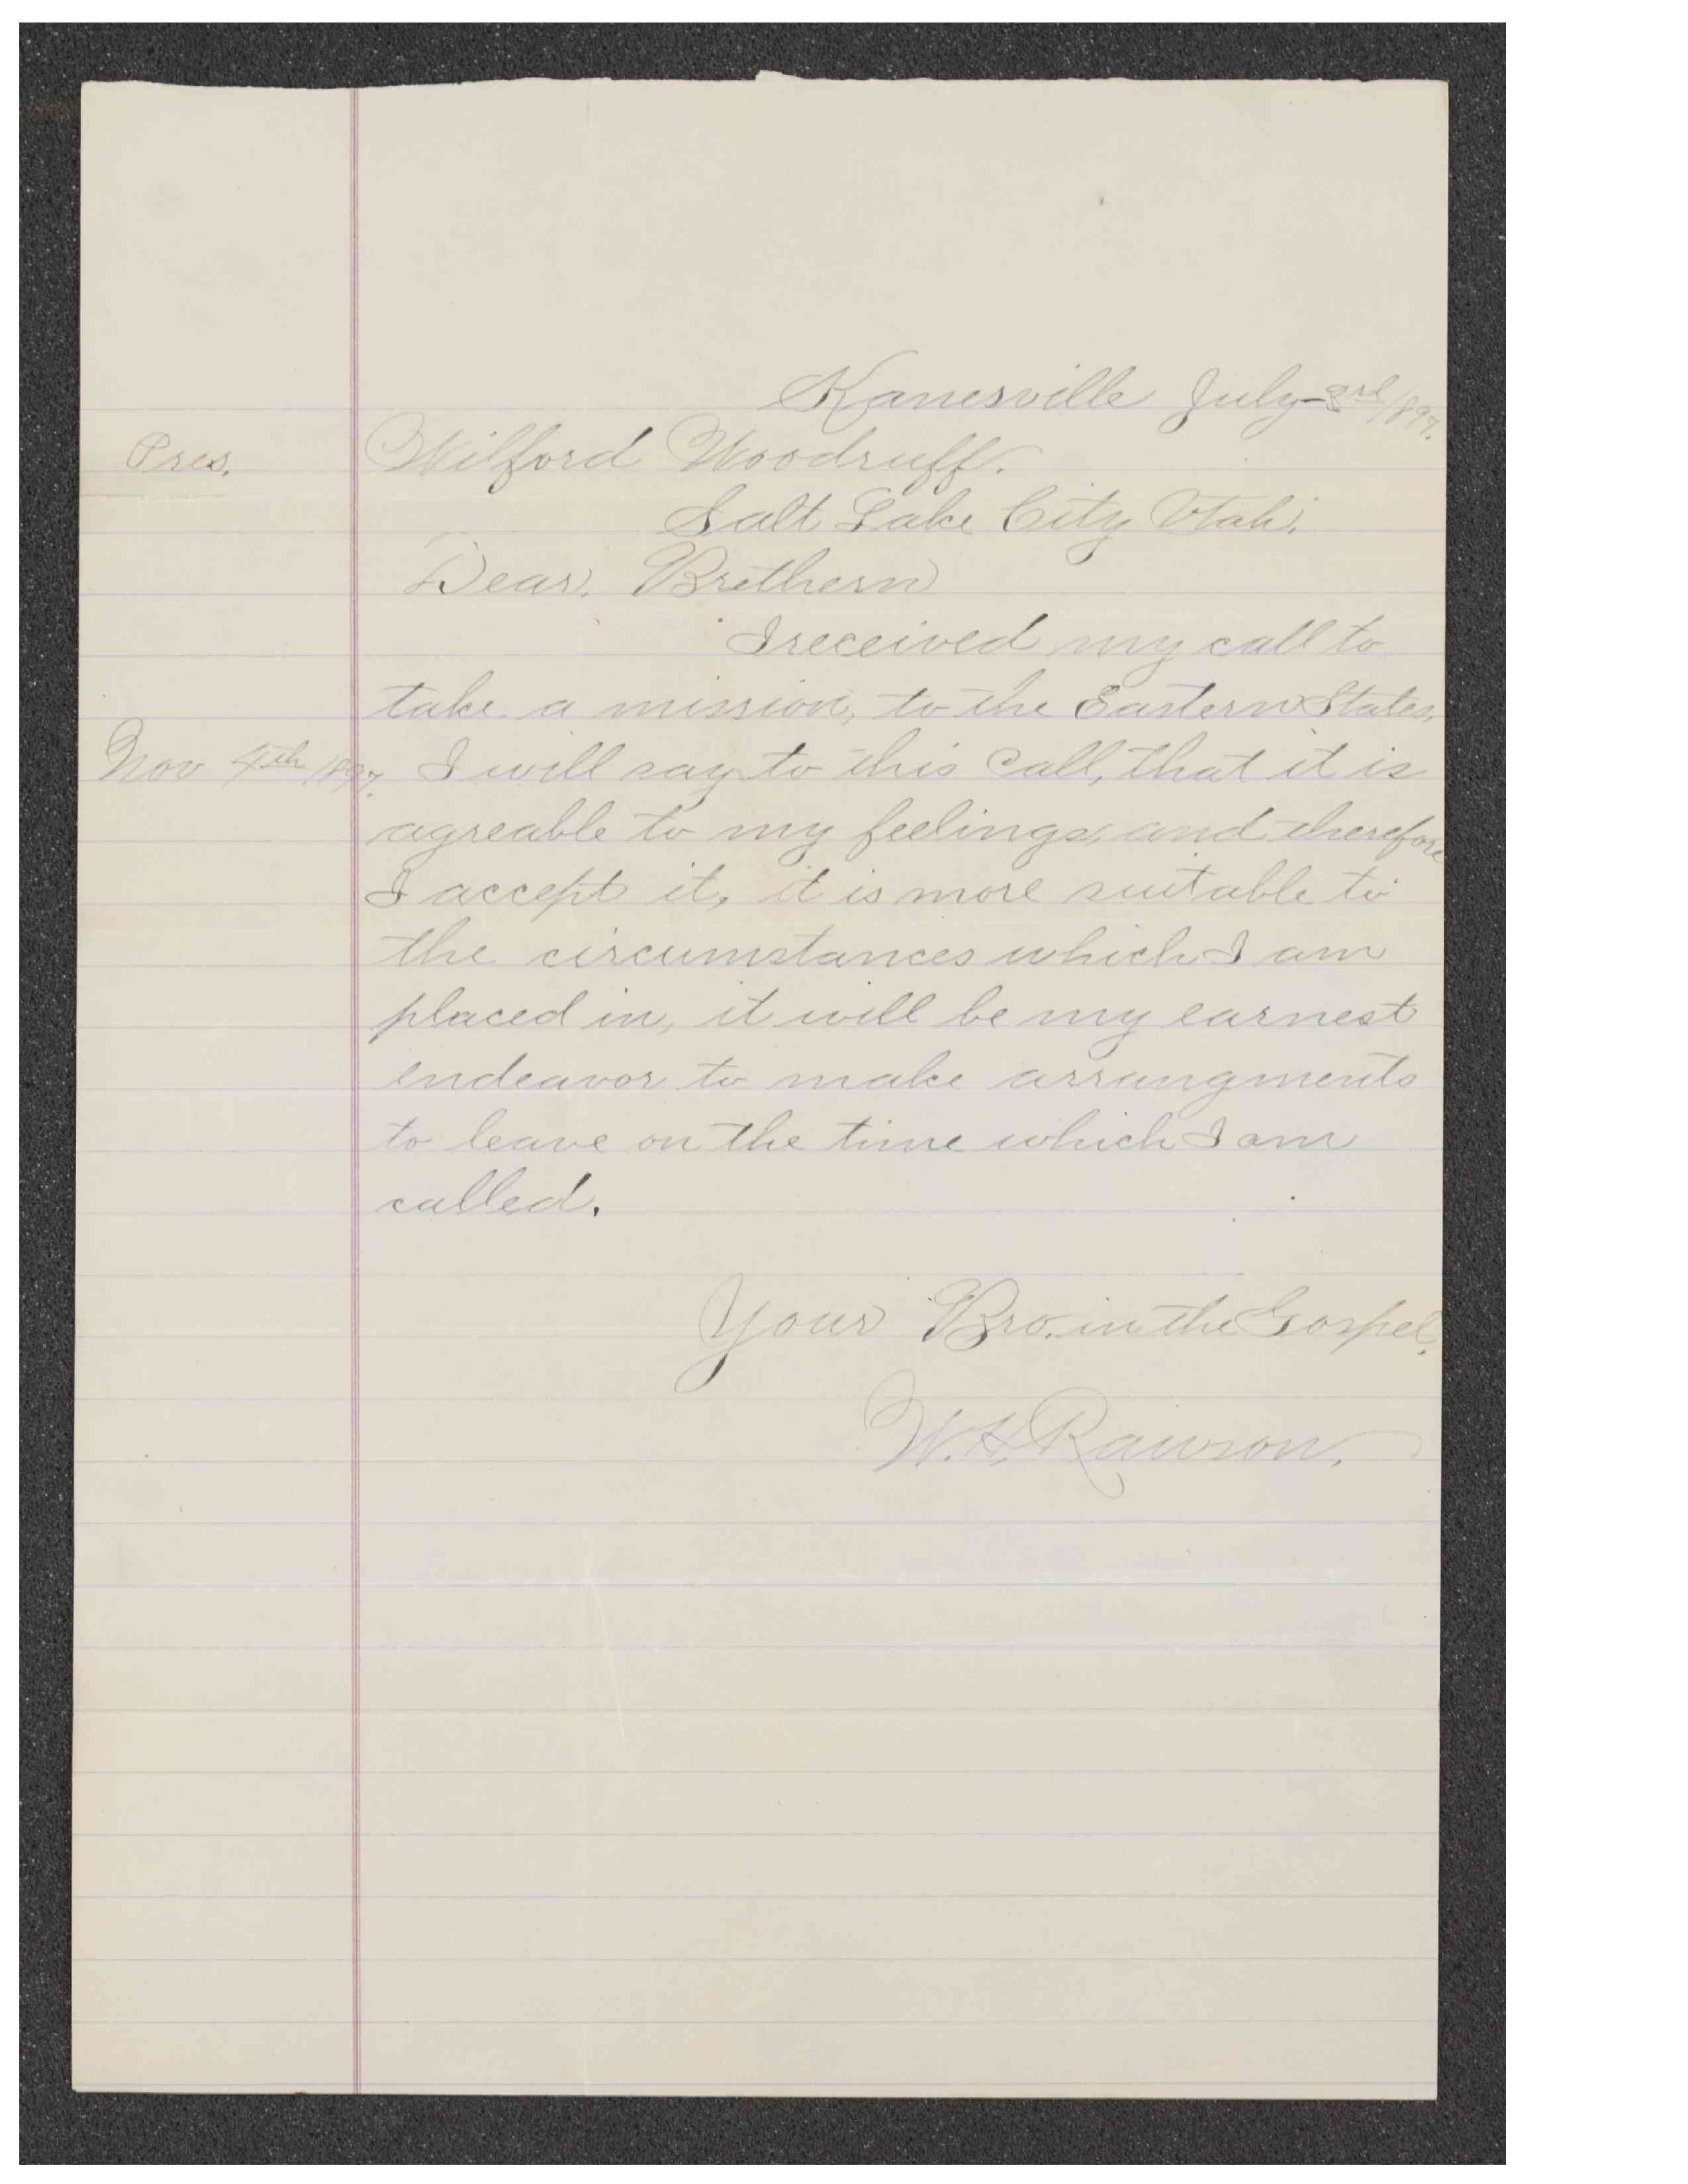 Kanesville July-3rd/1897.
Pres. Wilford Woodruff.
Salt Lake City Utah.
Dear. Brethern
I received my call to
take a mission, to the Eastern States,
Nov 4th/1897. I will say to this Call, that it is
agreable to my feelings, and therefore
I accept it, it is more suitable to
the circumstances which I am
placed in, it will be my earnest
endeavor to make arrangments
to leave on the time which I am
called.
Your Bro. in the Gospel.
W.H. Rawson.